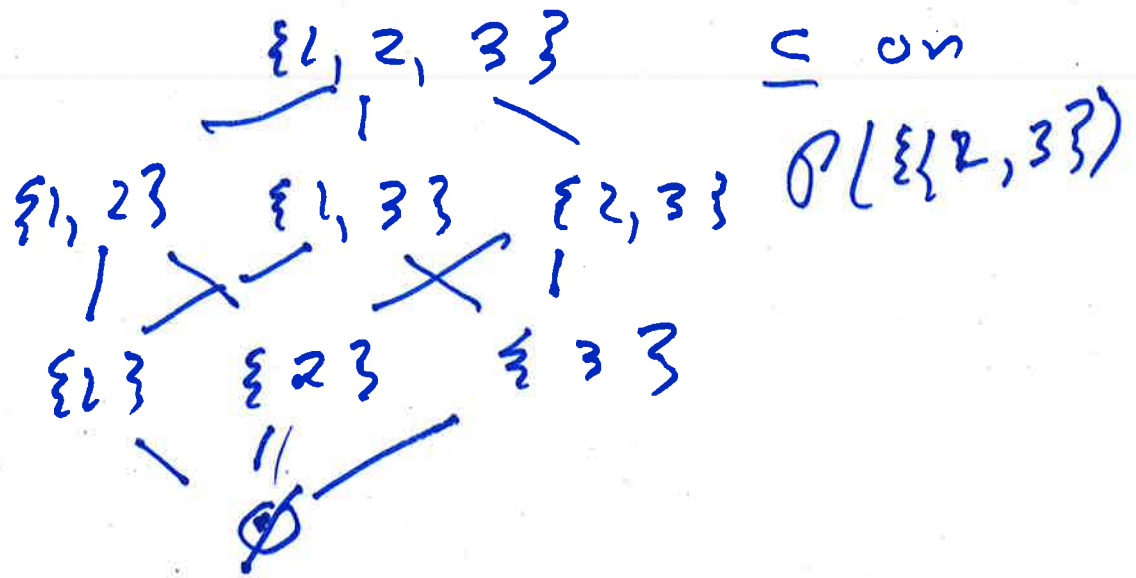 {1, 2, 3}
⊆ on
P({1 2, 3})
{1, 2} {1, 3} {2, 3}
{1} {2} {3}
∅